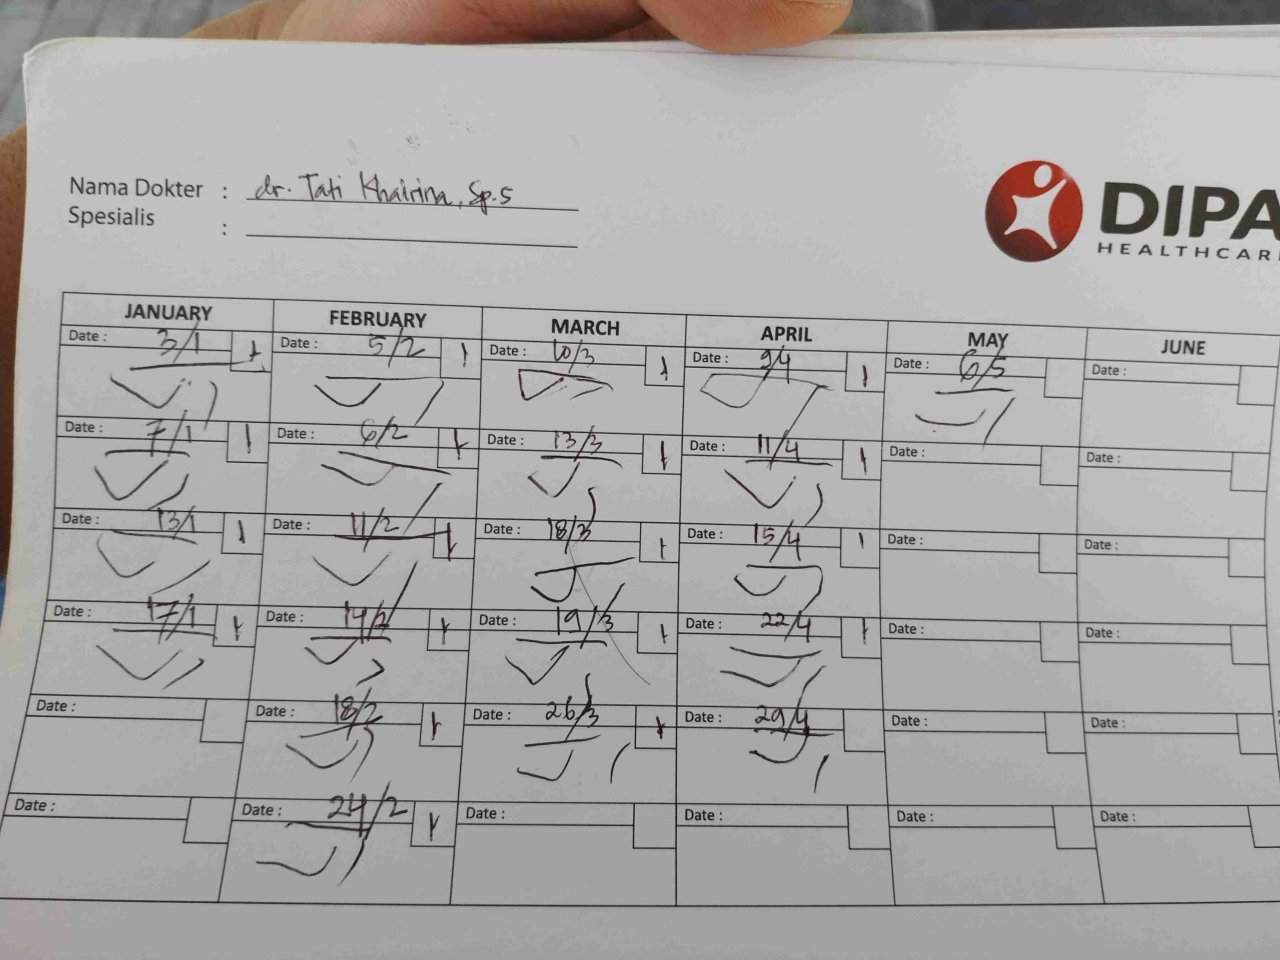 Nama Dokter : dr. Tati Khairina, Sp.S
Spesialis :
DIPA
HEALTHCAR
JANUARY FEBRUARY MARCH APRIL MAY JUNE
Date : 3/1 Date : 5/2 Date : 10/3 Date : 9/4 Date : 6/5 Date :
Date : 7/1 Date : 6/2 Date : 13/3 Date : 11/4 Date : Date :
Date : 13/1 Date : 11/2 Date : 18/3 Date : 15/4 Date : Date :
Date : 17/1 Date : 14/2 Date : 19/3 Date : 22/4 Date : Date :
Date : Date : 18/2 Date : 26/3 Date : 29/4 Date : Date :
Date : Date : 24/2 Date : Date : Date : Date :